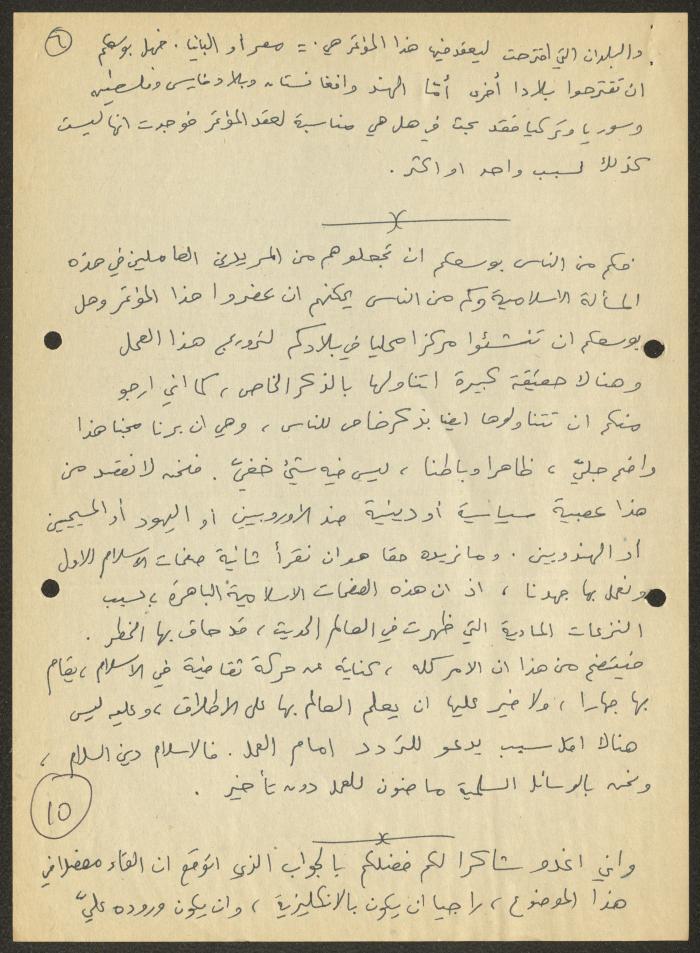 ٦
والبلدان التي اقترحت ليعقد فيها هذا المؤتمر هي := مصر أو البانيا . فهل بوسعكم
ان تقترحوا بلادا أخرى أمّا الهند وافغانستان وبلاد فارس وفلسطين
وسوريا وتركيا فقد بحث في هل هي مناسبة لعقد المؤتمر فوجدت انها ليست
كذلك لسبب واحد او اكثر .
فكم من الناس بوسعكم ان تجعلوهم من المريدين العاملين في هذه
المسألة الاسلامية وكم من الناس يمكنهم ان يحضروا هذا المؤتمر وهل
بوسعكم ان تنشئوا مركزا محليا في بلادكم لترويج هذا العمل
وهنالك حقيقة كبيرة اتناولها بالذكر الخاص ، كما اني ارجو
منكم ان تتناولوها ايضا بذكر خاص للناس ، وهي ان برنامجنا هذا
واضح جليّ ، ظاهرا وباطنا ، ليس فيه شيئ خفيّ . فنحن لا نقصد من
هذا عصبية سياسية أو دينية ضد الأوروبيين أو اليهود أو المسيحيين
أو الهندويين . وما نريده حقا هو ان نقرأ ثانية صفحات الاسلام الاول
ونعمل بها جهدنا ، اذ ان هذه الصفحات الاسلامية الباهرة ، بسبب
النزعات المادية التي ظهرت في العالم الحديث ، قد حاق بها الخطر .
فيتضح من هذا ان الامر كله ، كناية عن حركة ثقافية في الاسلام ، يقام
بها جهارا ، ولا ضير عليها ان يعلم العالم بها على الاطلاق ، وعليه ليس
هنالك اقل سبب يدعو للتردد امام العمل . فالاسلام دين السلام ،
ونحن بالوسائل السلمية ماضون للعمل دون تأخير .
10
واني اغدو شاكرا لكم فضلكم بالجواب الذي اتوقع ان القاه مفصلا في
هذا الموضوع ، راجيا ان يكون بالانكليزية ، وان يكون وروده عليّ